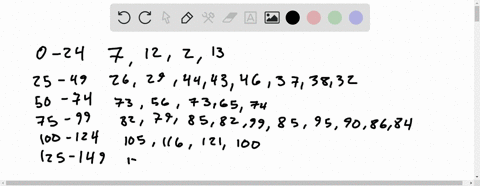 0-24 7, 12, 2, 13
25-49 26, 29, 44, 43, 46, 37, 38, 32
50-74 73, 56, 73, 65, 74
75-99 82, 79, 85, 82, 99, 85, 95, 90, 86, 84
100-124 105, 116, 121, 100
125-149